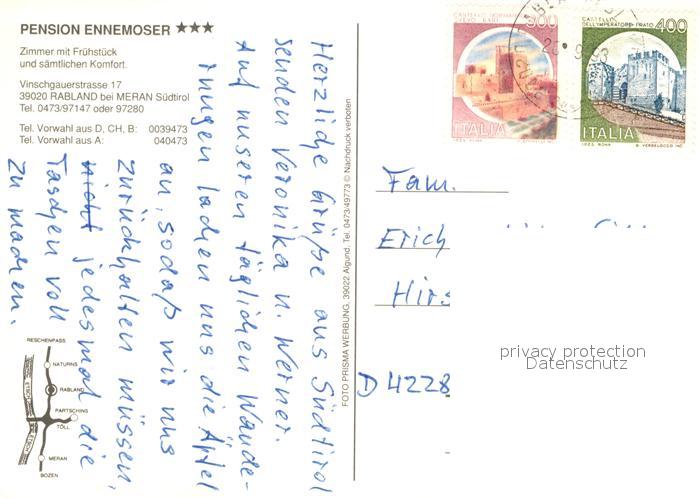 PENSION ENNEMOSER ★★★
Zimmer mit Frühstück
und sämtlichen Komfort.
Vinschgauerstrasse 17
39020 RABLAND bei MERAN Südtirol
Tel. 0473/97147 oder 97280
Tel. Vorwahl aus D, CH, B: 0039473
Tel. Vorwahl aus A: 040473
Herzliche Grüße aus Südtirol
senden Veronika u. Werner.
Auf unseren täglichen Wande-
rungen lachen uns die Äpfel
an, sodaß wir uns
zurückhalten müssen,
nicht jedesmal die
Taschen voll
zu machen.
RESCHENPASS
NATURNS
RABLAND
PARTSCHINS
TÖLL
MERAN
BOZEN
ETSCH
FOTO PRISMA WERBUNG, 39022 Algund, Tel. 0473/49773 © Nachdruck verboten
CASTELLO NORMANNO
SVEVO - BARI
ITALIA
I.P.Z.S. ROMA
CASTELLO
DELL'IMPERATORE - PRATO
400
ITALIA
I.P.Z.S. ROMA E. VERDELOCCO INC.
Fam.
Erich
Hirs
D 4228
privacy protection
Datenschutz